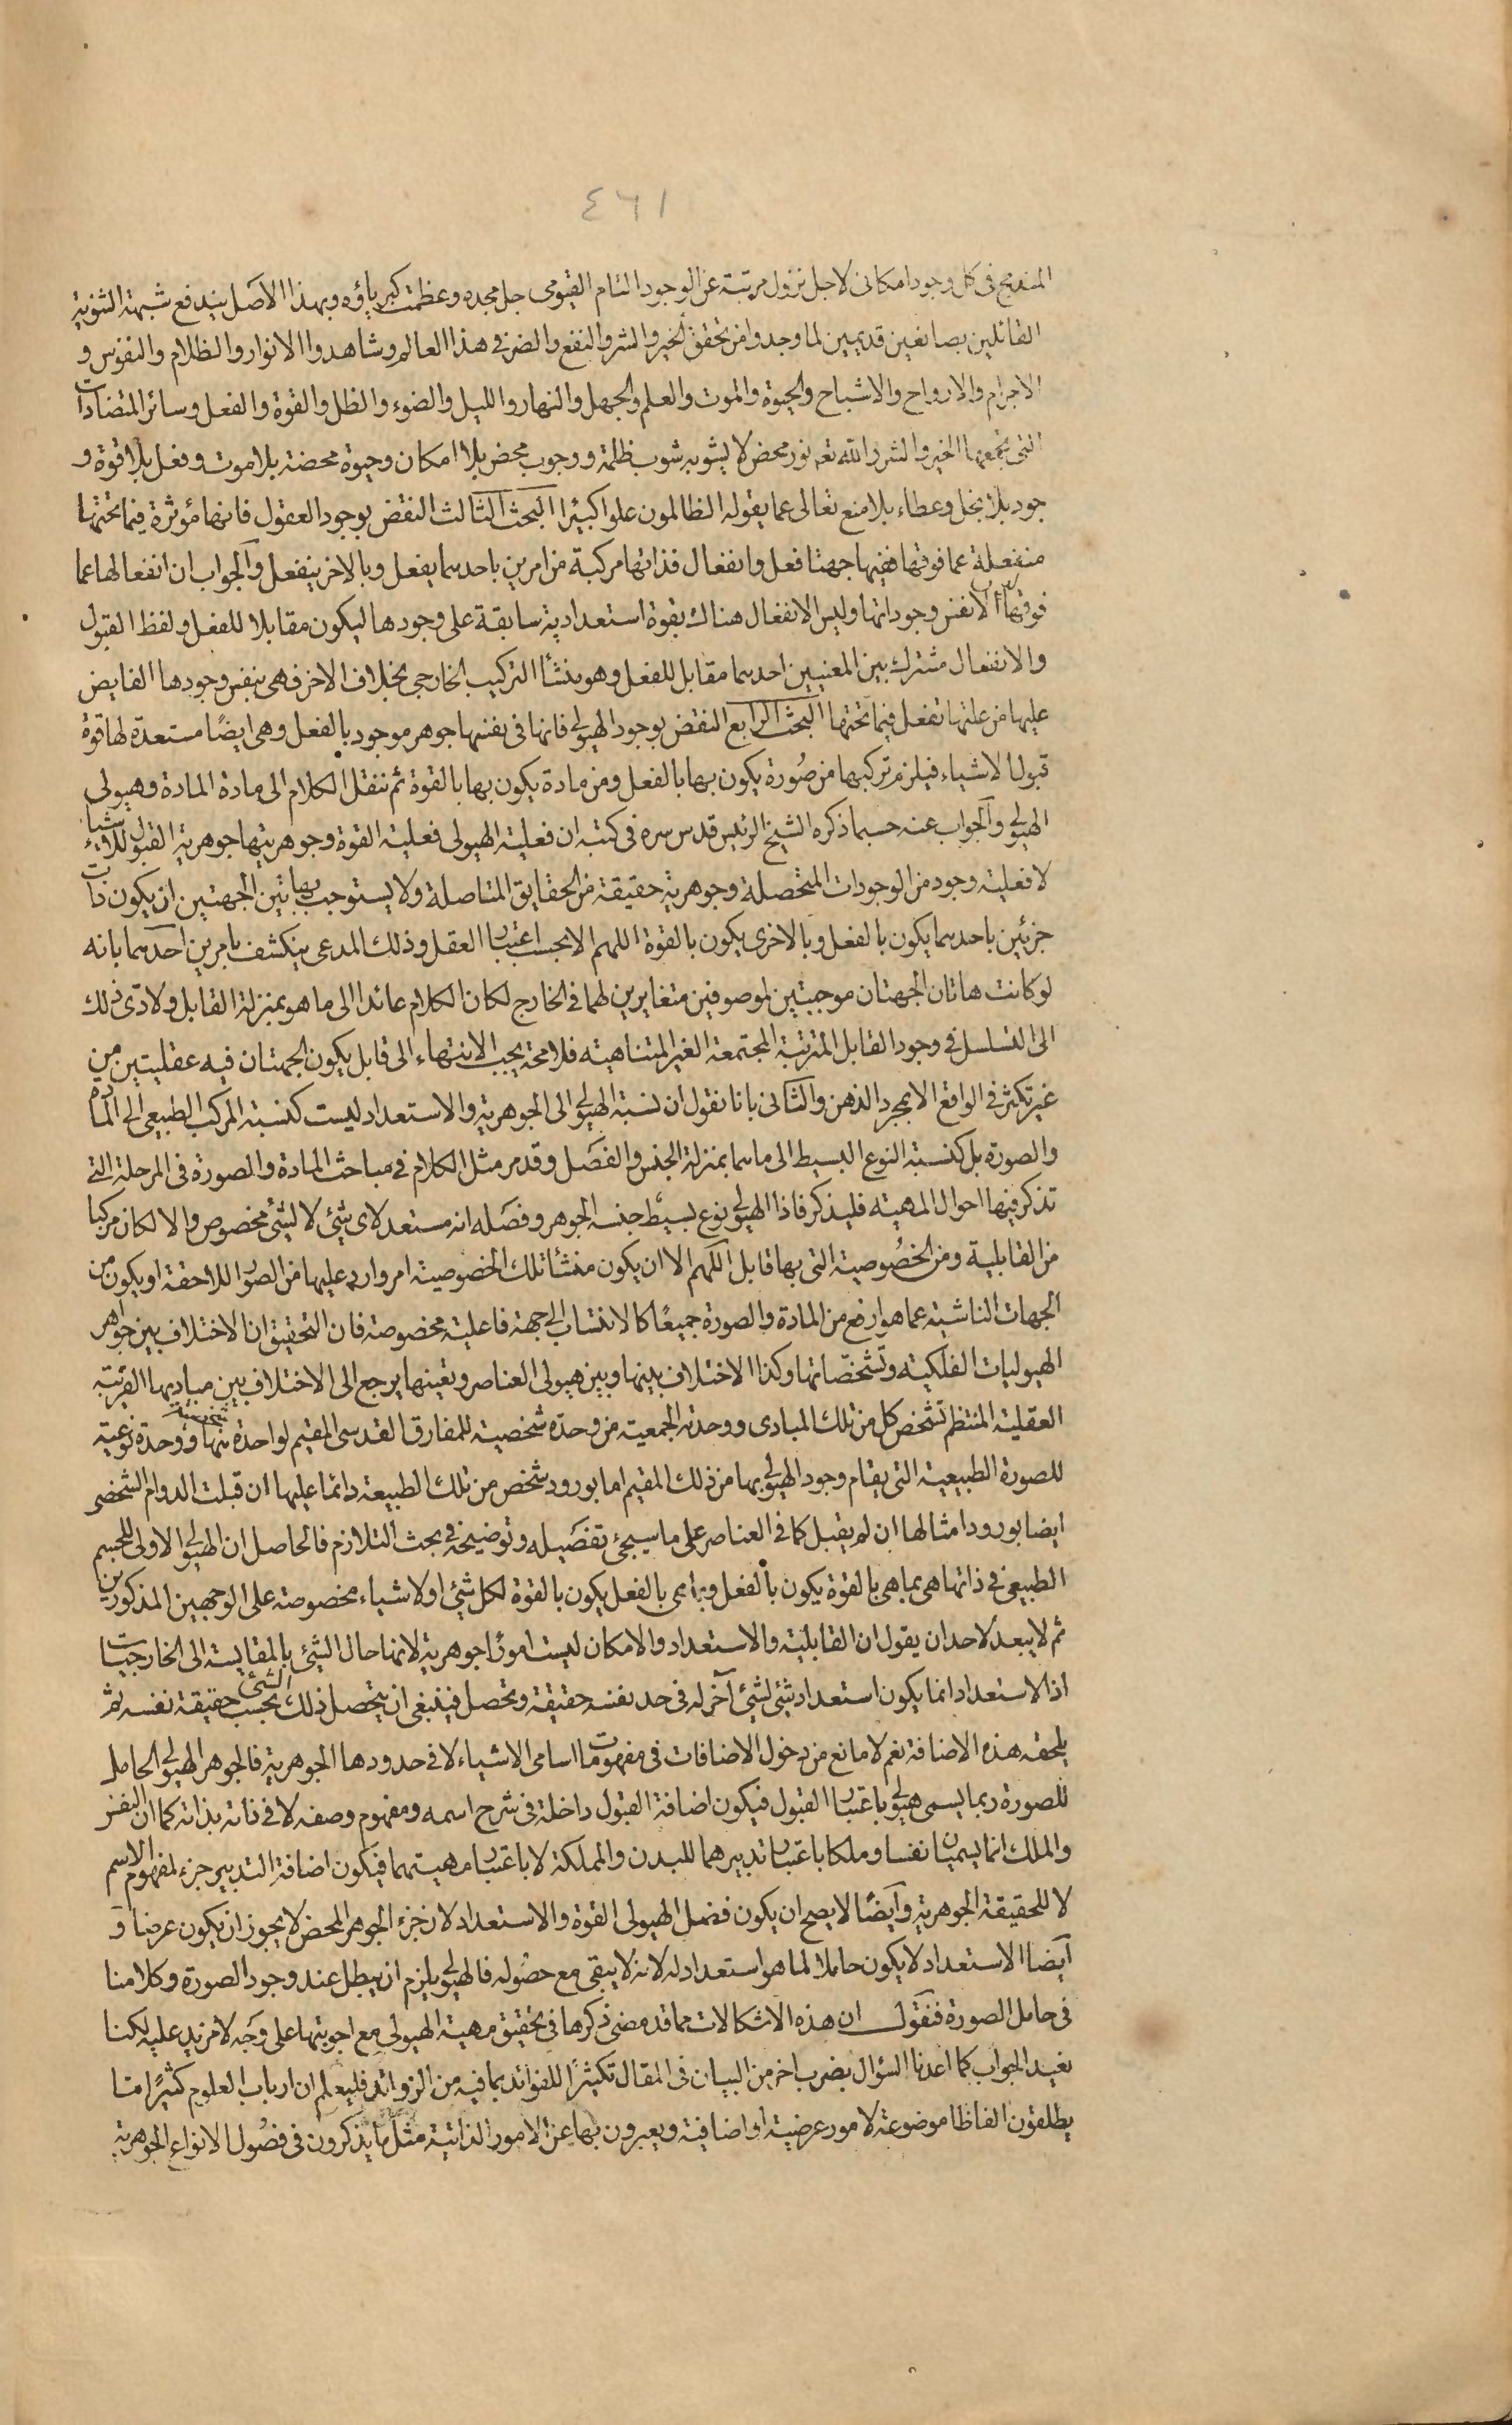 ٤٦١
المندمج فى كل وجود امكانى لاجل نزول مرتبة عن الوجود التام القيومى جل مجده وعظمت كبرياؤه وبهذا الاصل يندفع شبهة الثنوية
القائلين بصانعين قديمين لما وجدوا من تحقق الخير والشر والنفع والضر فى هذا العالم وشاهدوا الانوار والظلام والنفوس و
الاجرام والارواح والاشباح والحيوة والموت والعلم والجهل والنهار والليل والضوء والظل والقوة والفعل وسائر المتضادات
التى يجمعها الخير والشر والله تعه نور محض لا يشوبه شوب ظلمة ووجوب محض بلا امكان وحيوة محضة بلا موت وفعل بلا قوة و
جود بلا بخل وعطاء بلا منع تعالى عما يقوله الظالمون علوا كبيرا البحث الثالث النقض بوجود العقول فانها مؤثرة فيما تحتها
منفعلة عما فوقها ففيها جهتا فعل وانفعال فذاتها مركبة من امرين باحدهما يفعل وبالاخر ينفعل والجواب ان انفعالها عما
فوقها ليس الا نفس وجوداتها وليس الانفعال هناك بقوة استعدادية سابقة على وجودها ليكون مقابلا للفعل ولفظ القبول
والانفعال مشترك بين المعنيين احدهما مقابل للفعل وهو منشأ التركيب الخارجى بخلاف الاخر فهى بنفس وجودها الفايض
عليها من علتها تفعل فيما تحتها البحث الرابع النقض بوجود الهيولى فانها فى نفسها جوهر موجود بالفعل وهى ايضًا مستعدة لها قوة
قبول الاشياء فيلزم تركبها من صُورة يكون بها بالفعل ومن مادة يكون بها بالقوة ثم ننقل الكلام الى مادة المادة وهيولى
الهيولى والجواب عنه حسبما ذكره الشيخ الرئيس قدس سره فى كتبه ان فعلية الهيولى فعلية القوة وجوهريتها جوهرية القبول للاشياء
لا فعلية وجود من الوجودات المتحصلة وجوهرية حقيقة من الحقايق المتاصلة ولا يستوجب بهاتين الجهتين ان يكون ذات
جزئين باحدهما يكون بالفعل وبالاخرى يكون بالقوة اللهم الا بحسب اعتبار العقل وذلك المدعى ينكشف بامرين احدهما بانه
لو كانت هاتان الجهتان موجبتين لموصوفين متغايرين لهما فى الخارج لكان الكلام عائدا الى ما هو بمنزلة القابل ولادّى ذلك
الى التسلسل فى وجود القابل المترتبة المجتمعة الغير المتناهية فلا محة يجب الانتهاء الى قابل يكون الجهتان فيه عقليتين من
غير تكثر فى الواقع الا بمجرد الذهن والثانى بانا نقول ان نسبة الهيولى الى الجوهرية والاستعداد ليست كنسبة المركب الطبيعى الى المادة
والصورة بل كنسبة النوع البسيط الى ما هما بمنزلة الجنس والفصل وقد مر مثل الكلام فى مباحث المادة والصورة فى المرحلة التى
تذكر فيها احوال المهية فليذكر فاذا الهيولى نوع بسيط جنسه الجوهر وفصله انه مستعد لاى شئ لا لشئ مخصوص والا لكان مركبا
من القابلية ومن الخصُوصية التى بها قابل اللهم الا ان يكون منشأ تلك الخصوصية امر وارد عليها من الصور اللاحقة او يكون من
الجهات الناشية عما هو ارفع من المادة والصورة جميعًا كالانتساب الى جهة فاعلية مخصوصة فان التحقيق ان الاختلاف بين جواهر
الهيوليات الفلكية وتشخصاتها وكذا الاختلاف بينها وبين هيولى العناصر وتعينها يرجع الى الاختلاف بين مباديها القريبة
العقلية المنتظم تشخص كل من تلك المبادى ووحدته الجمعية من وحدة شخصية للمفارق القدسى المقيم لواحدة منها ووحدة نوعية
للصورة الطبيعية التى يقام وجود الهيولى بها من ذلك المقيم اما بورود شخص من تلك الطبيعة دائما عليها ان قبلت الدوام الشخصى
ايضا بورود امثالها ان لم يقبل كما فى العناصر على ما سيجئ تفصيله وتوضيحه فى بحث التلازم فالحاصل ان الهيولى الاولى للجسم
الطبيعى فى ذاتها هى بما هى بالقوة يكون بالفعل وبما هى بالفعل يكون بالقوة لكل شئ او لاشياء مخصوصة على الوجهين المذكورين
ثم لا يبعد لاحد ان يقول ان القابلية والاستعداد والامكان ليست امورًا جوهرية لانها حال الشئ بالمقايسة الى الخارجيات
اذ الاستعداد انما يكون استعداد شئ لشئ آخر له فى حد نفسه حقيقة وتحصل فينبغى ان يتحصل ذلك الشئ بحسب حقيقة نفسه ثم
يلحقه هذه الاضافة نعم لا مانع من دخول الاضافات فى مفهومات اسامى الاشياء لا فى حدودها الجوهرية فالجوهر الهيولى الحامل
للصورة ربما يسمى هيولى باعتبار القبول فيكون اضافة القبول داخلة فى شرح اسمه ومفهوم وصفه لا فى ذاته بذاته كما ان النفس
والملك انما يسميان نفسا وملكا باعتبار تدبيرهما للبدن والمملكة لا باعتبار مهيتهما فيكون اضافة التدبير جزء لمفهوم الاسم
لا للحقيقة الجوهرية وايضًا لا يصح ان يكون فصل الهيولى القوة والاستعداد لان جزء الجوهر المحض لا يجوز ان يكون عرضا و
ايضا الاستعداد لا يكون حاملا لما هو استعداد له لانه لا يبقى مع حصُوله فالهيولى يلزم ان يبطل عند وجود الصورة وكلامنا
فى حامل الصورة فنقول ان هذه الاشكالات مما قد مضى ذكرها فى تحقيق مهية الهيولى مع اجوبتها على وجه لا مزيد عليه لكنا
نعيد الجواب كما اعدنا السؤال بضرب اخر من البيان فى المقال تكثيرًا للفوائد بما فيه من الزوائد فليعلم ان ارباب العلوم كثيرًا ما
يطلقون الفاظا موضوعة لامور عرضية او اضافية ويعبرون بها عن الامور الذاتية مثل ما يذكرون فى فصُول الانواع الجوهرية